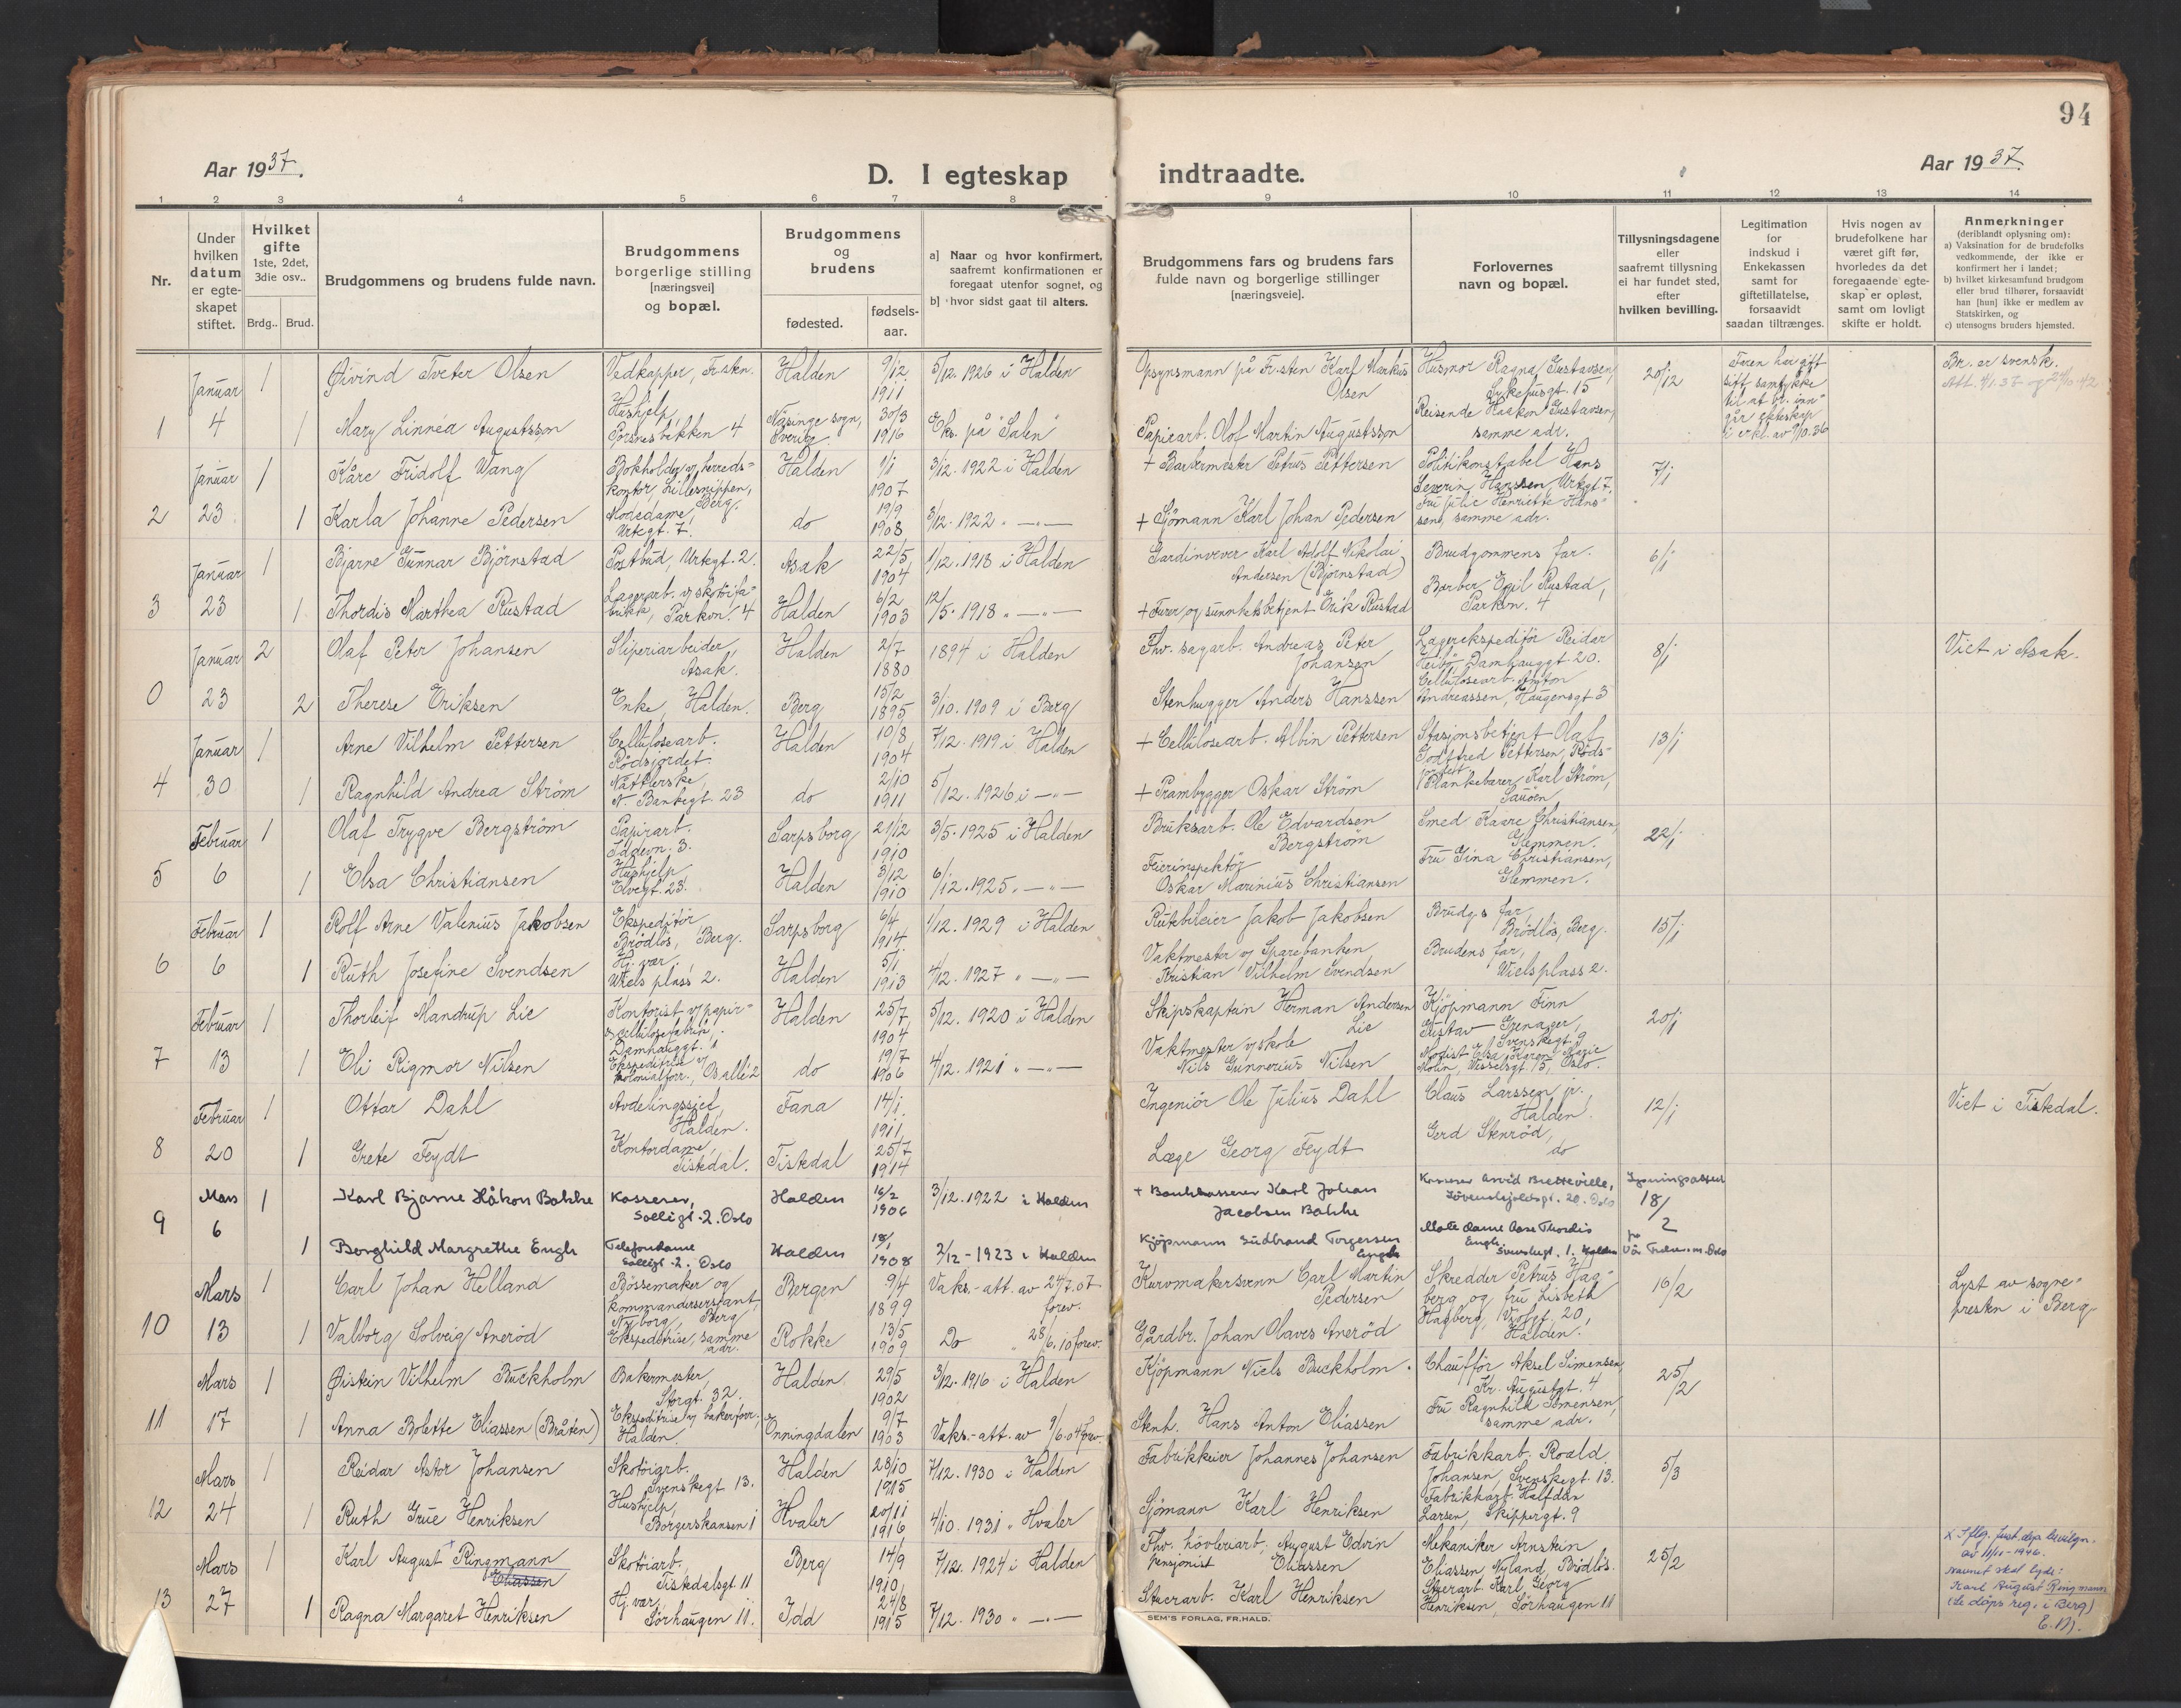 94
Aar 1937.
D. I egteskap indtraadte.
Aar 1937
1 2 3 4 5 6 7 8 9 10 11 12 13 14
Nr.
Under hvilken datum er egteskapet stiftet.
Hvilket gifte 1ste, 2det, 3die osv..
Brdg.. Brud.
Brudgommens og brudens fulde navn.
Brudgommens borgerlige stilling [næringsvei] og bopæl.
Brudgommens og brudens
fødested.
fødsels-aar.
a] Naar og hvor konfirmert, saafremt konfirmationen er foregaat utenfor sognet, og
b] hvor sidst gaat til alters.
Brudgommens fars og brudens fars fulde navn og borgerlige stillinger [næringsveie].
Forlovernes navn og bopæl.
Tillysningsdagene eller saafremt tillysning ei har fundet sted, efter hvilken bevilling.
Legitimation for indskud i Enkekassen samt for giftetillatelse, forsaavidt saadan tiltrænges.
Hvis nogen av brudefolkene har været gift før, hvorledes da det foregaaende egteskap er opløst, samt om lovligt skifte er holdt.
Anmerkninger
(deriblandt oplysning om):
a) Vaksination for de brudefolks vedkommende, der ikke er konfirmert her i landet;
b) hvilket kirkesamfund brudgom eller brud tilhører, forsaavidt han [hun] ikke er medlem av Statskirken, og
c) utensogns bruders hjemsted.
Januar 1 Øivind Tveter Olsen Vedkapper, Fr.sten. Halden 9/12 1911 5/12. 1926 i Halden Opsynsmann på Fr.sten Karl Markus Olsen Husmor Ragna Gustavsen, Sykehusgt. 15 20/12 Faren har gitt sitt samtykke til at br. inngår ekteskap i erkl. av 9/10.36 Br. er svensk.
1 4 1 Mary Linnéa Augustsson Hushjelp, Porsnesbakken 4 Näsinge sogn, Sverige 30/3 1916 Eks. på "Salen" Papirarb. Olof Martin Augustsson Reisende Haakon Gustavsen, samme adr.
Januar 1 Kåre Fridolf Wang Bokholder v/ herredskontor, Lillesnippen, Berg. Halden 1/1 1907 3/12. 1922 i Halden + Barbermester Petrus Pettersen Politikonstabel Hans Severin Hanssen, Urtegt 7. 7/1
2 23 1 Karla Johanne Pedersen Motedame, Urtegt. 7. do 19/9 1908 3/12. 1922 " —"— + Sjömann Karl Johan Pedersen Fru Julie Henriette Hanssen, samme adr.
Januar 1 Bjarne Gunnar Björnstad Postbud, Urtegt. 2. Asak 22/5 1904 1/12. 1918 i Halden Gardinvever Karl Adolf Nikolai Andersen (Björnstad) Brudgommens far. 6/1
3 23 1 Thordis Marthea Rustad Lagerarb. v/ skotöifabrikk, Parkvn. 4 Halden 6/2 1903 12/5. 1918 " —"— + Furer og sunnhetsbetjent Erik Rustad Barber Egil Rustad, Parkvn. 4
Januar 2 Olaf Peter Johansen Sliperiarbeider, Asak. Halden 2/7 1880 1894 i Halden Fhv. sagarb. Andreas Peter Johansen Lagerekspeditör Reidar Heibö, Damhauggt. 20. 8/1 Viet i Asak.
0 23 2 Therese Eriksen Enke, Halden. Berg 15/2 1895 3/10. 1909 i Berg Stenhugger Anders Hanssen Cellulosearb. Anton Andreassen, Haugensgt 3
Januar 1 Arne Vilhelm Pettersen Cellulosearb. Rödsjordet. Halden 10/8 1904 7/12. 1919 i Halden + Cellulosearb. Albin Pettersen Stasjonsbetjent Olaf Godtfred Pettersen, Rödsjordet 13/1
4 30 1 Ragnhild Andrea Ström Nåtlerske, N. Bankegt. 23 do 2/10 1911 5/12. 1926 i —"— + Prambygger Oskar Ström Plankebærer Karl Ström, Sauöen
Februar 1 Olaf Trygve Bergström Papirarb. Iddevn. 3. Sarpsborg 21/12 1910 3/5. 1925 i Halden Bruksarb. Ole Edvardsen Bergström Smed Kaare Christiansen, Glemmen. 22/1
5 6 1 Elsa Christiansen Hushjelp Elvegt. 23. Halden 3/12 1910 6/12. 1925. " —"— Feierinspektör Oskar Marinius Christiansen Fru Gina Christiansen, Glemmen.
Februar 1 Rolf Arne Valenius Jakobsen Ekspeditör, Brödlös, Berg. Sarpsborg 6/4 1914 1/12. 1929 i Halden Rutebileier Jakob Jakobsen Brudg.s far, Brödlös, Berg. 15/1
6 6 1 Ruth Josefine Svendsen Hj. vær, Wiels plass 2. Halden 5/1 1913 4/12. 1927 " —"— Vaktmester v/ Sparebanken Kristian Vilhelm Svendsen Brudens far, Wielsplass 2.
Februar 1 Thorleif Mandrup Lie Kontorist v/ papir- & cellulosefabrik, Damhauggt. 1 Halden 25/7 1904 5/12. 1920 i Halden Skipskaptein Herman Andersen Lie Kjöpmann Finn Gustav Grenager, Svenskegt 9 20/1
7 13 1 Eli Rigmor Nilsen Ekspeditrise v/ kolonialforr., Os allé 2 do 19/7 1906 4/12. 1921 " —"— Vaktmester v/ skole Nils Gunnerius Nilsen Modist Elsa Karen Marie Molin, Wesselsgt. 15, Oslo.
Februar 1 Ottar Dahl Avdelingssjef, Halden. Fana 14/1 1911 Ingeniör Ole Julius Dahl Claus Larssen jr. Halden 12/1 Viet i Tistedal.
8 20 1 Grete Feydt Kontordame, Tistedal. Tistedal 25/7 1914 Læge Georg Feydt Gerd Stenröd, do
Mars 1 Karl Bjarne Håkon Bakke Kasserer, Solligt. 2. Oslo Halden 16/2 1906 3/12. 1922 i Halden + Bankkasserer Karl Johan Jacobsen Bakke Kasserer Arvid Bretteville, Lövenskjoldsgt. 20. Oslo Lysningsattest 18/2 fra Vår Frelsers m. Oslo
9 6 1 Borghild Margrethe Engh Telefondame Solligt. 2. Oslo Halden 18/1 1908 2/12 - 1923 i Halden Kjöpmann Gudbrand Torgersen Engh Motedame Aase Thordis Engh Svenskegt. 1. Halden
Mars 1 Carl Johan Helland Bössemaker og kommandersersjant, Nyborg, Berg Bergen 9/4 1899 Vaks.-att. av 24/7.07 forev. Kurvmakersvenn Carl Martin Pedersen Skredder Petrus Hagberg og fru Lisbeth Hagberg, Vold­gt. 20, Halden. 16/2 Lyst av sognepresten i Berg
10 13 1 Valborg Solveig Aneröd Ekspeditrise, samme adr. Rokke 13/5 1909 Do " 28/6. 10 forev. Gårdbr. Johan Olaves Aneröd
Mars 1 Øistein Vilhelm Buckholm Bakermester, Storgt. 32. Halden 29/5 1902 3/12. 1916 i Halden Kjöpmann Niels Buckholm. Chaufför Aksel Simensen, Kr. Augustgt. 4 25/2
11 17 1 Anna Bolette Eliassen (Bråten) Ekspeditrise v/ bakerforr., Halden. Enningdalen 9/7 1903 Vaks.-att. av 9/6.04 forev. Stenh. Hans Anton Eliassen Fru Ragnhild Simensen, samme adr.
Mars 1 Reidar Astor Johansen Skotöiarb. Svenskegt 13. Halden 28/10 1915 7/12. 1930 i Halden Fabrikkeier Johannes Johansen Fabrikkarb. Roald Johansen, Svenskegt. 13. 5/3
12 24 1 Ruth Grue Henriksen Hushjelp, Borgerskansen 1 Hvaler 20/11 1916 4/10. 1931 " Hvaler Sjömann Karl Henriksen Fabrikkarb. Halfdan Larsen, Skippergt. 9
Mars 1 Karl August Ringmann Eliassen Skotöiarb. Tistedalsgt. 11 Berg 14/9 1910 7/12. 1924 i Halden Fhv. hövleriarb., pensjonist August Edvin Eliassen Mekaniker Arnstein Eliassen, Nyland, Brödlös. 25/2 x I flg. Just.dep. bevilgn. av 11/11-1946. navnet skal lyde: Karl August Ringmann (Se dåps reg. i Berg) E.M.
13 27 1 Ragna Margaret Henriksen Hj. vær, Sörhaugen 11. Idd 24/8 1915 7/12. 1930 " —"— Stuerarb. Karl Henriksen Stuerarb. Karl Georg Henriksen, Sörhaugen 11
SEM'S FORLAG, FR.HALD.